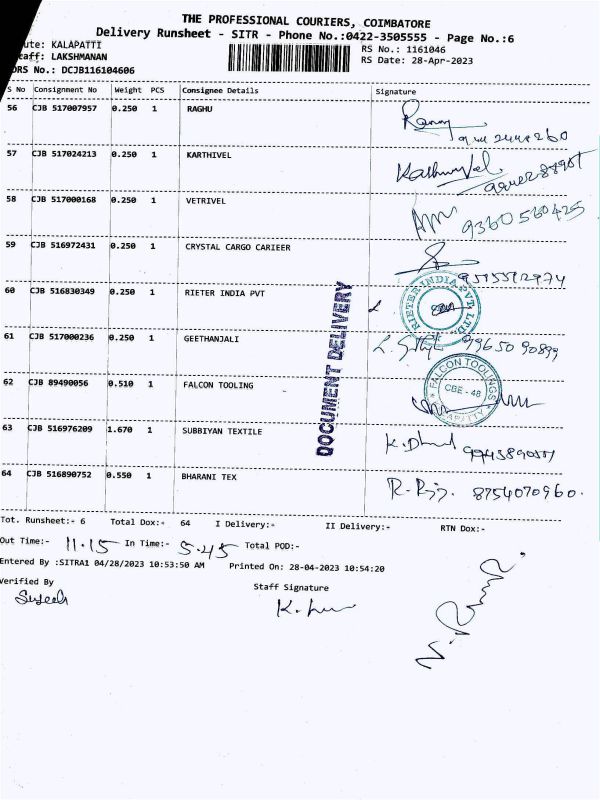 THE PROFESSIONAL COURIERS, COIMBATORE
Delivery Runsheet - SITR - Phone No.:0422-3505555 - Page No.:6
ute: KALAPATTI RS No.: 1161046
taff: LAKSHMANAN RS Date: 28-Apr-2023
DRS No.: DCJB116104606
S No Consignment No Weight PCS Consignee Details Signature
56 CJB 517007957 0.250 1 RAGHU
57 CJB 517024213 0.250 1 KARTHIVEL
58 CJB 517000168 0.250 1 VETRIVEL 9360560425
59 CJB 516972431 0.250 1 CRYSTAL CARGO CARIEER
60 CJB 516830349 0.250 1 RIETER INDIA PVT RIETER INDIA PVT. LTD.
61 CJB 517000236 0.250 1 GEETHANJALI 9965090899
62 CJB 89490056 0.510 1 FALCON TOOLING FALCON TOOLINGS CBE - 48
63 CJB 516976209 1.670 1 SUBBIYAN TEXTILE
64 CJB 516890752 0.550 1 BHARANI TEX 8754070960.
DOCUMENT DELIVERY
Tot. Runsheet:- 6 Total Dox:- 64 I Delivery:- II Delivery:- RTN Dox:-
Out Time:- 11.15 In Time:- 5.45 Total POD:-
Entered By :SITRA1 04/28/2023 10:53:50 AM Printed On: 28-04-2023 10:54:20
Verified By Staff Signature